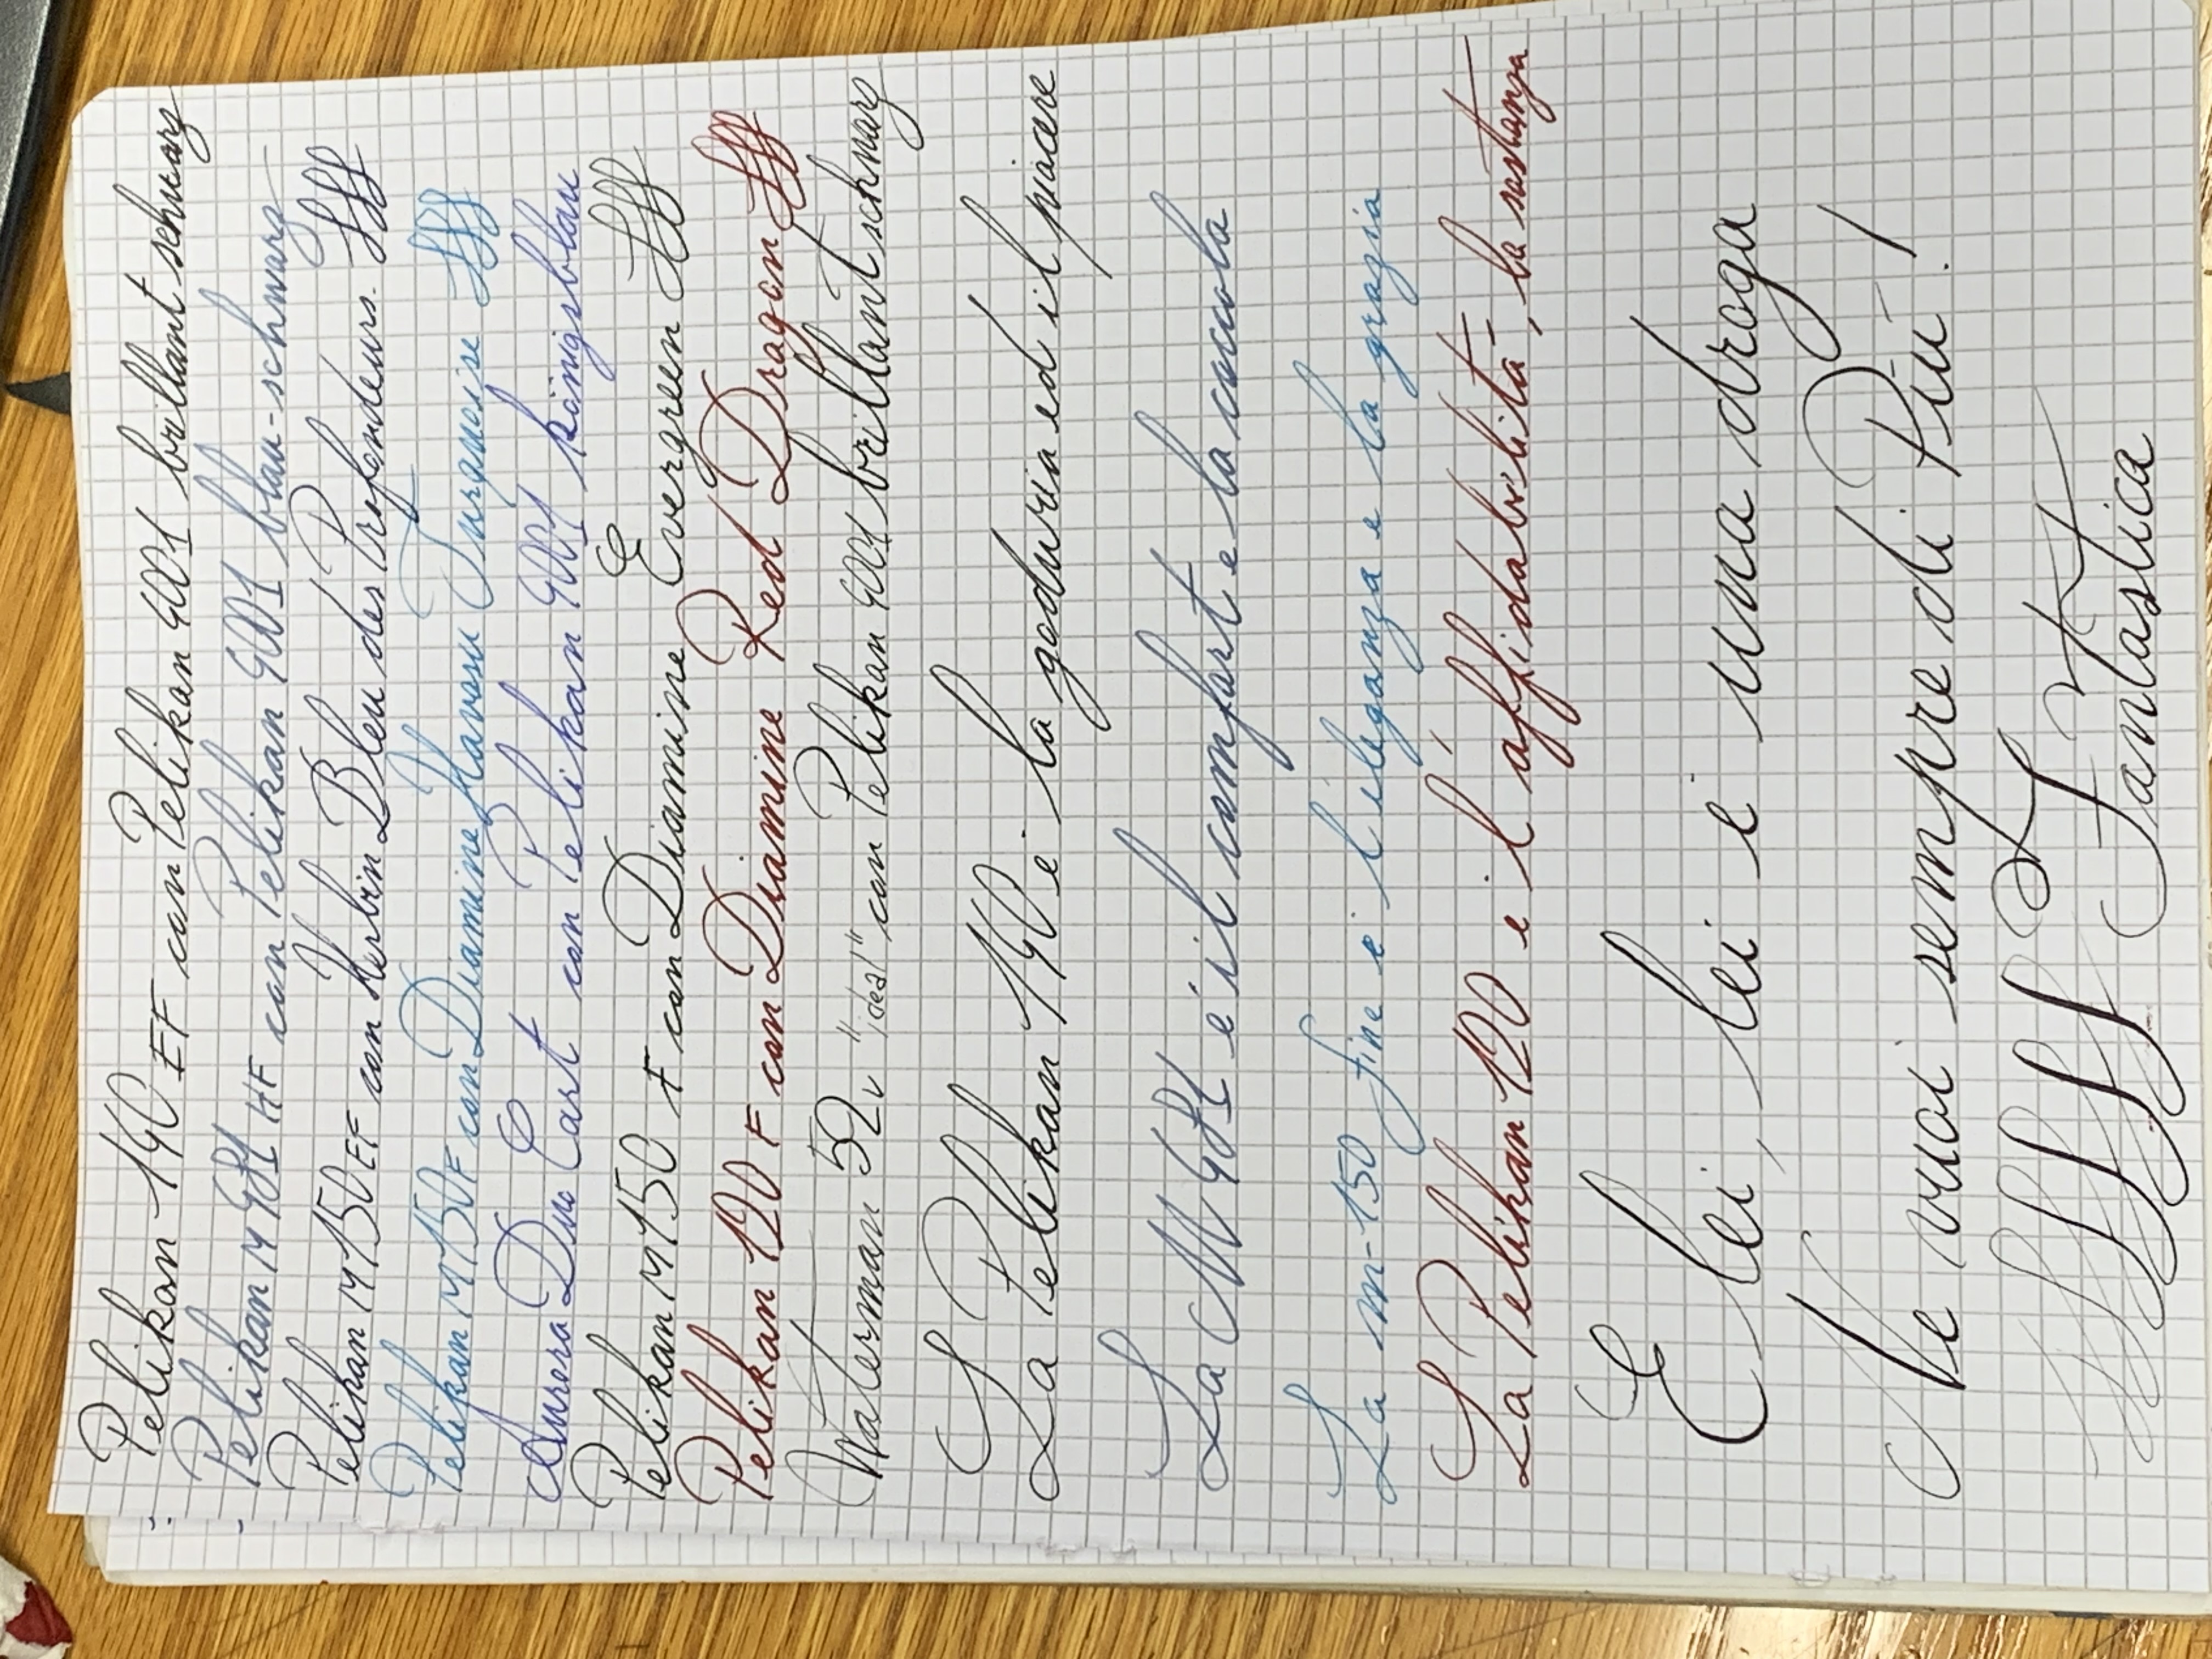 Pelikan 140 EF con Pelikan 4001 brillant schwarz
Pelikan M481 HF con Pelikan 4001 blau-schwarz
Pelikan M150 EF con Herbin Bleu des Profondeurs. fff
Pelikan M150 F con Diamine Havasu Turquoise fff
Aurora Duo Cart con Pelikan 4001 königsblau
Pelikan M150 F con Diamine Evergreen fff
Pelikan 120 F con Diamine Red Dragon fff
Waterman 52v "ideal" con Pelikan 4001 brillant schwarz
La Pelikan 140 è la goduria ed il piacere
La M481 è il comfort e la cucola
La m-150 fine è l'eleganza e la grazia
La Pelikan 120 è l'affidabilità, la sostanza
E lei, lei è una droga
Ne vuoi sempre di Più!
Fantastica